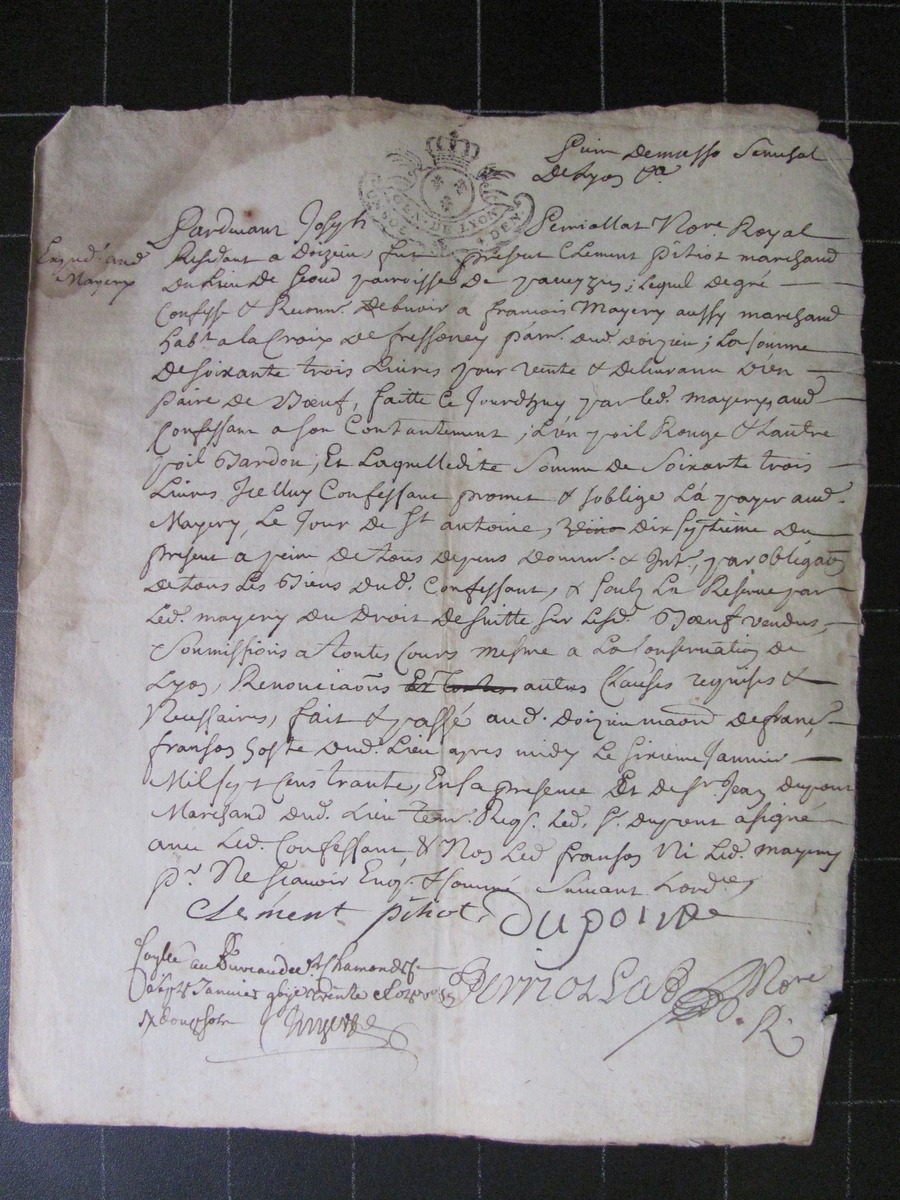 De Lyon &a
GEN. DE LYON
Expedié aud
Mayery
Pardevant Joseph Perriollat Nore. Royal
Residant a Doizieu, fut present Clement pitiot marchand
du Lieu de paroisse de pavezzin; lequel de gré
Confesse & Reconn. debvoir a francois Mayery aussy marchand
habt. a la Croix de parr. dud. doizieu; la somme
de soixante trois Livres pour vente & delivrance d'un
paire de Boeuf, faitte ce jourdhuy par led. mayery aud
Confessant a son Contantement; L'un poil Rouge & L'autre
poil Bardou; Et Laquelledite somme de soixante trois
Livres Icelluy Confessant promet & soblige La payer aud.
Mayery, Le Jour de St antoine, dix septieme du
present a peine de tous depens domm. & Int., par obligaon
de tous Les Biens dud. Confessant, & soubz La Reserve par
Led. mayery du Droit de suitte sur Lesd. Boeuf vendus,
Soumissions a toutes Cours mesme a La Conservation de
Lyon, Renonciaons Et toutes autres Clauses requises &
Necessaires, fait & passé aud. doizieu maison de franc.
franson hoste dud. Lieu apres midy Le sixieme Janvier
Mil sept Cens trante, En la presence Et de Sr. Jean dupont
Marchand dud. Lieu tem. Reqs. Led. Sr. dupont a signé
avec Led. Confessant, & Non Led franson Ni Led. mayery
pr. Ne Scavoir Enq. & sommé Suivant Lord.es
Clement pitiot Dupont
au Bureau de St Chamond
Janvier trente
Nore
R.